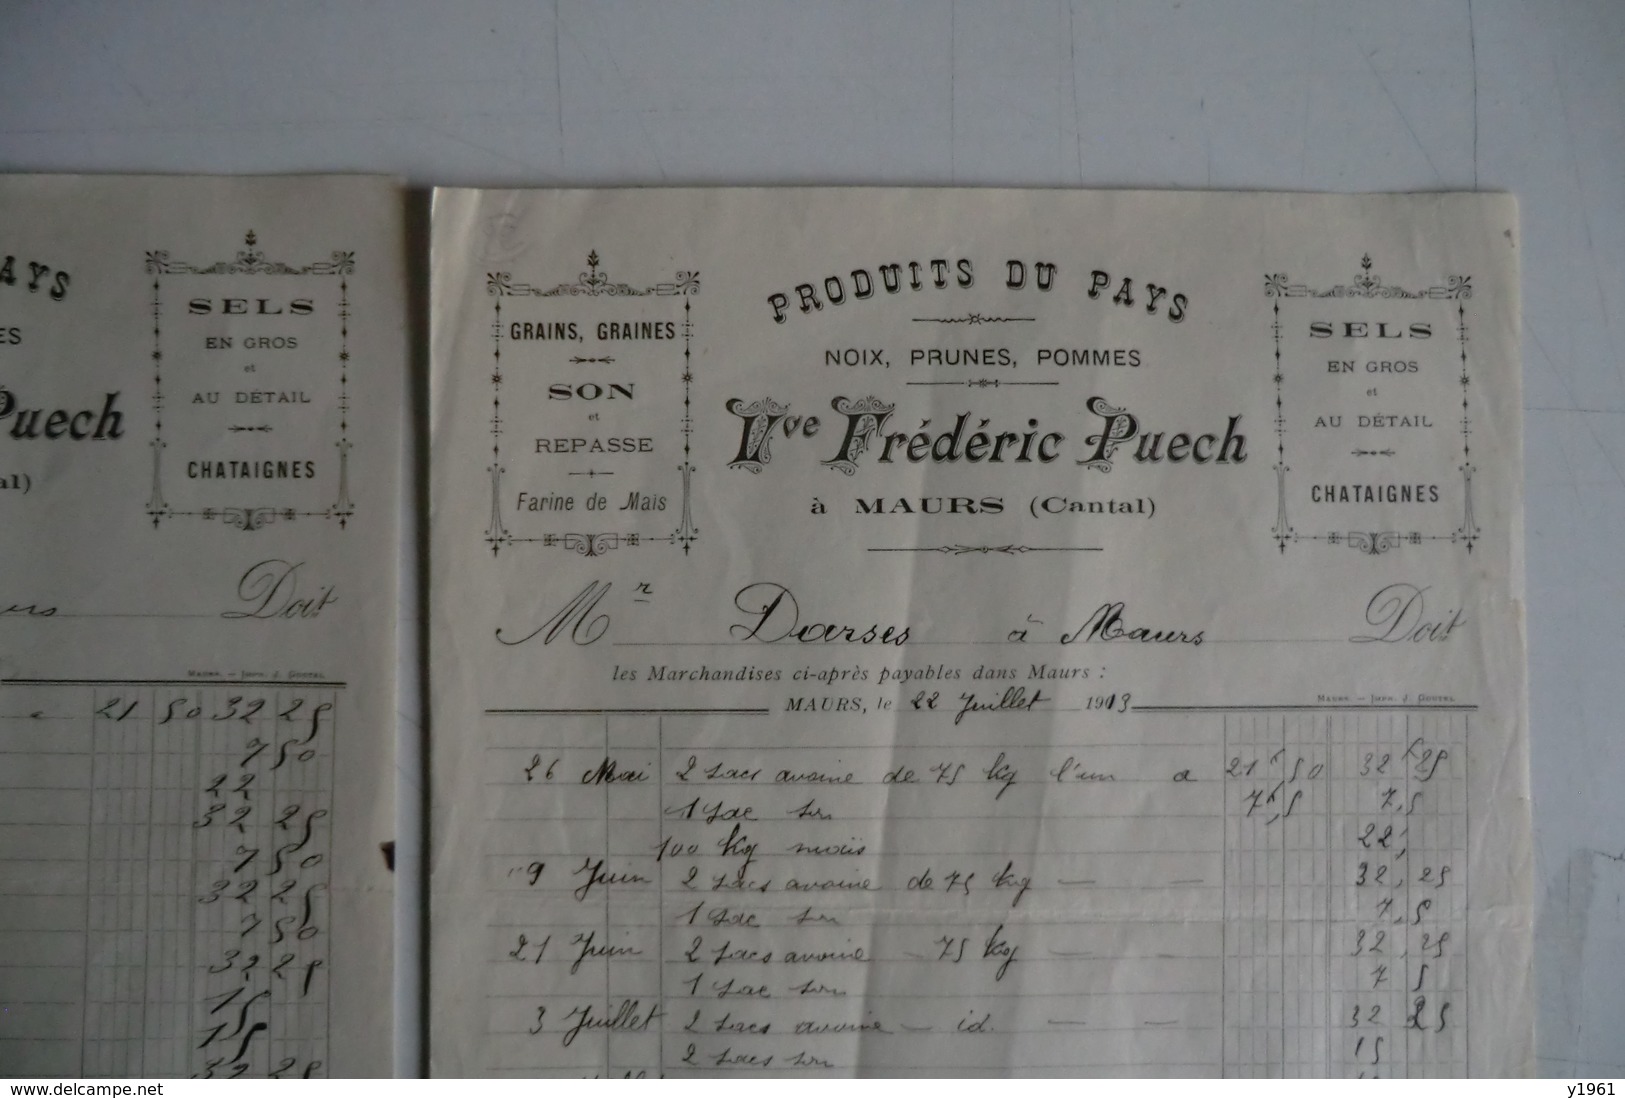 AYS
ES
Puech
al)
SELS
EN GROS
et
AU DÉTAIL
CHATAIGNES
Doit
MAURS. — IMP. J. GOUTEL
a 21 50 32 25
7 50
22
32 25
7 50
32 25
7 50
32 25
15
15
32 25
GRAINS, GRAINES
SON
et
REPASSE
Farine de Maïs
PRODUITS DU PAYS
NOIX, PRUNES, POMMES
Vve Frédéric Puech
à MAURS (Cantal)
SELS
EN GROS
et
AU DÉTAIL
CHATAIGNES
Mr Darses à Maurs Doit
les Marchandises ci-après payables dans Maurs :
MAURS, le 22 Juillet 1913
MAURS — IMPR. J. GOUTEL
26 Mai 2 sacs avoine de 75 kg l'un a 21f,50 32f25
1 sac son 7f,5 7,5
100 kg maïs 22,
9 Juin 2 sacs avoine de 75 kg — — 32,25
1 sac son 7,5
21 Juin 2 sacs avoine — 75 kg — — 32,25
1 sac son 7 5
3 Juillet 2 sacs avoine — id. — — 32 25
2 sacs son 15
delcampe.net
y1961